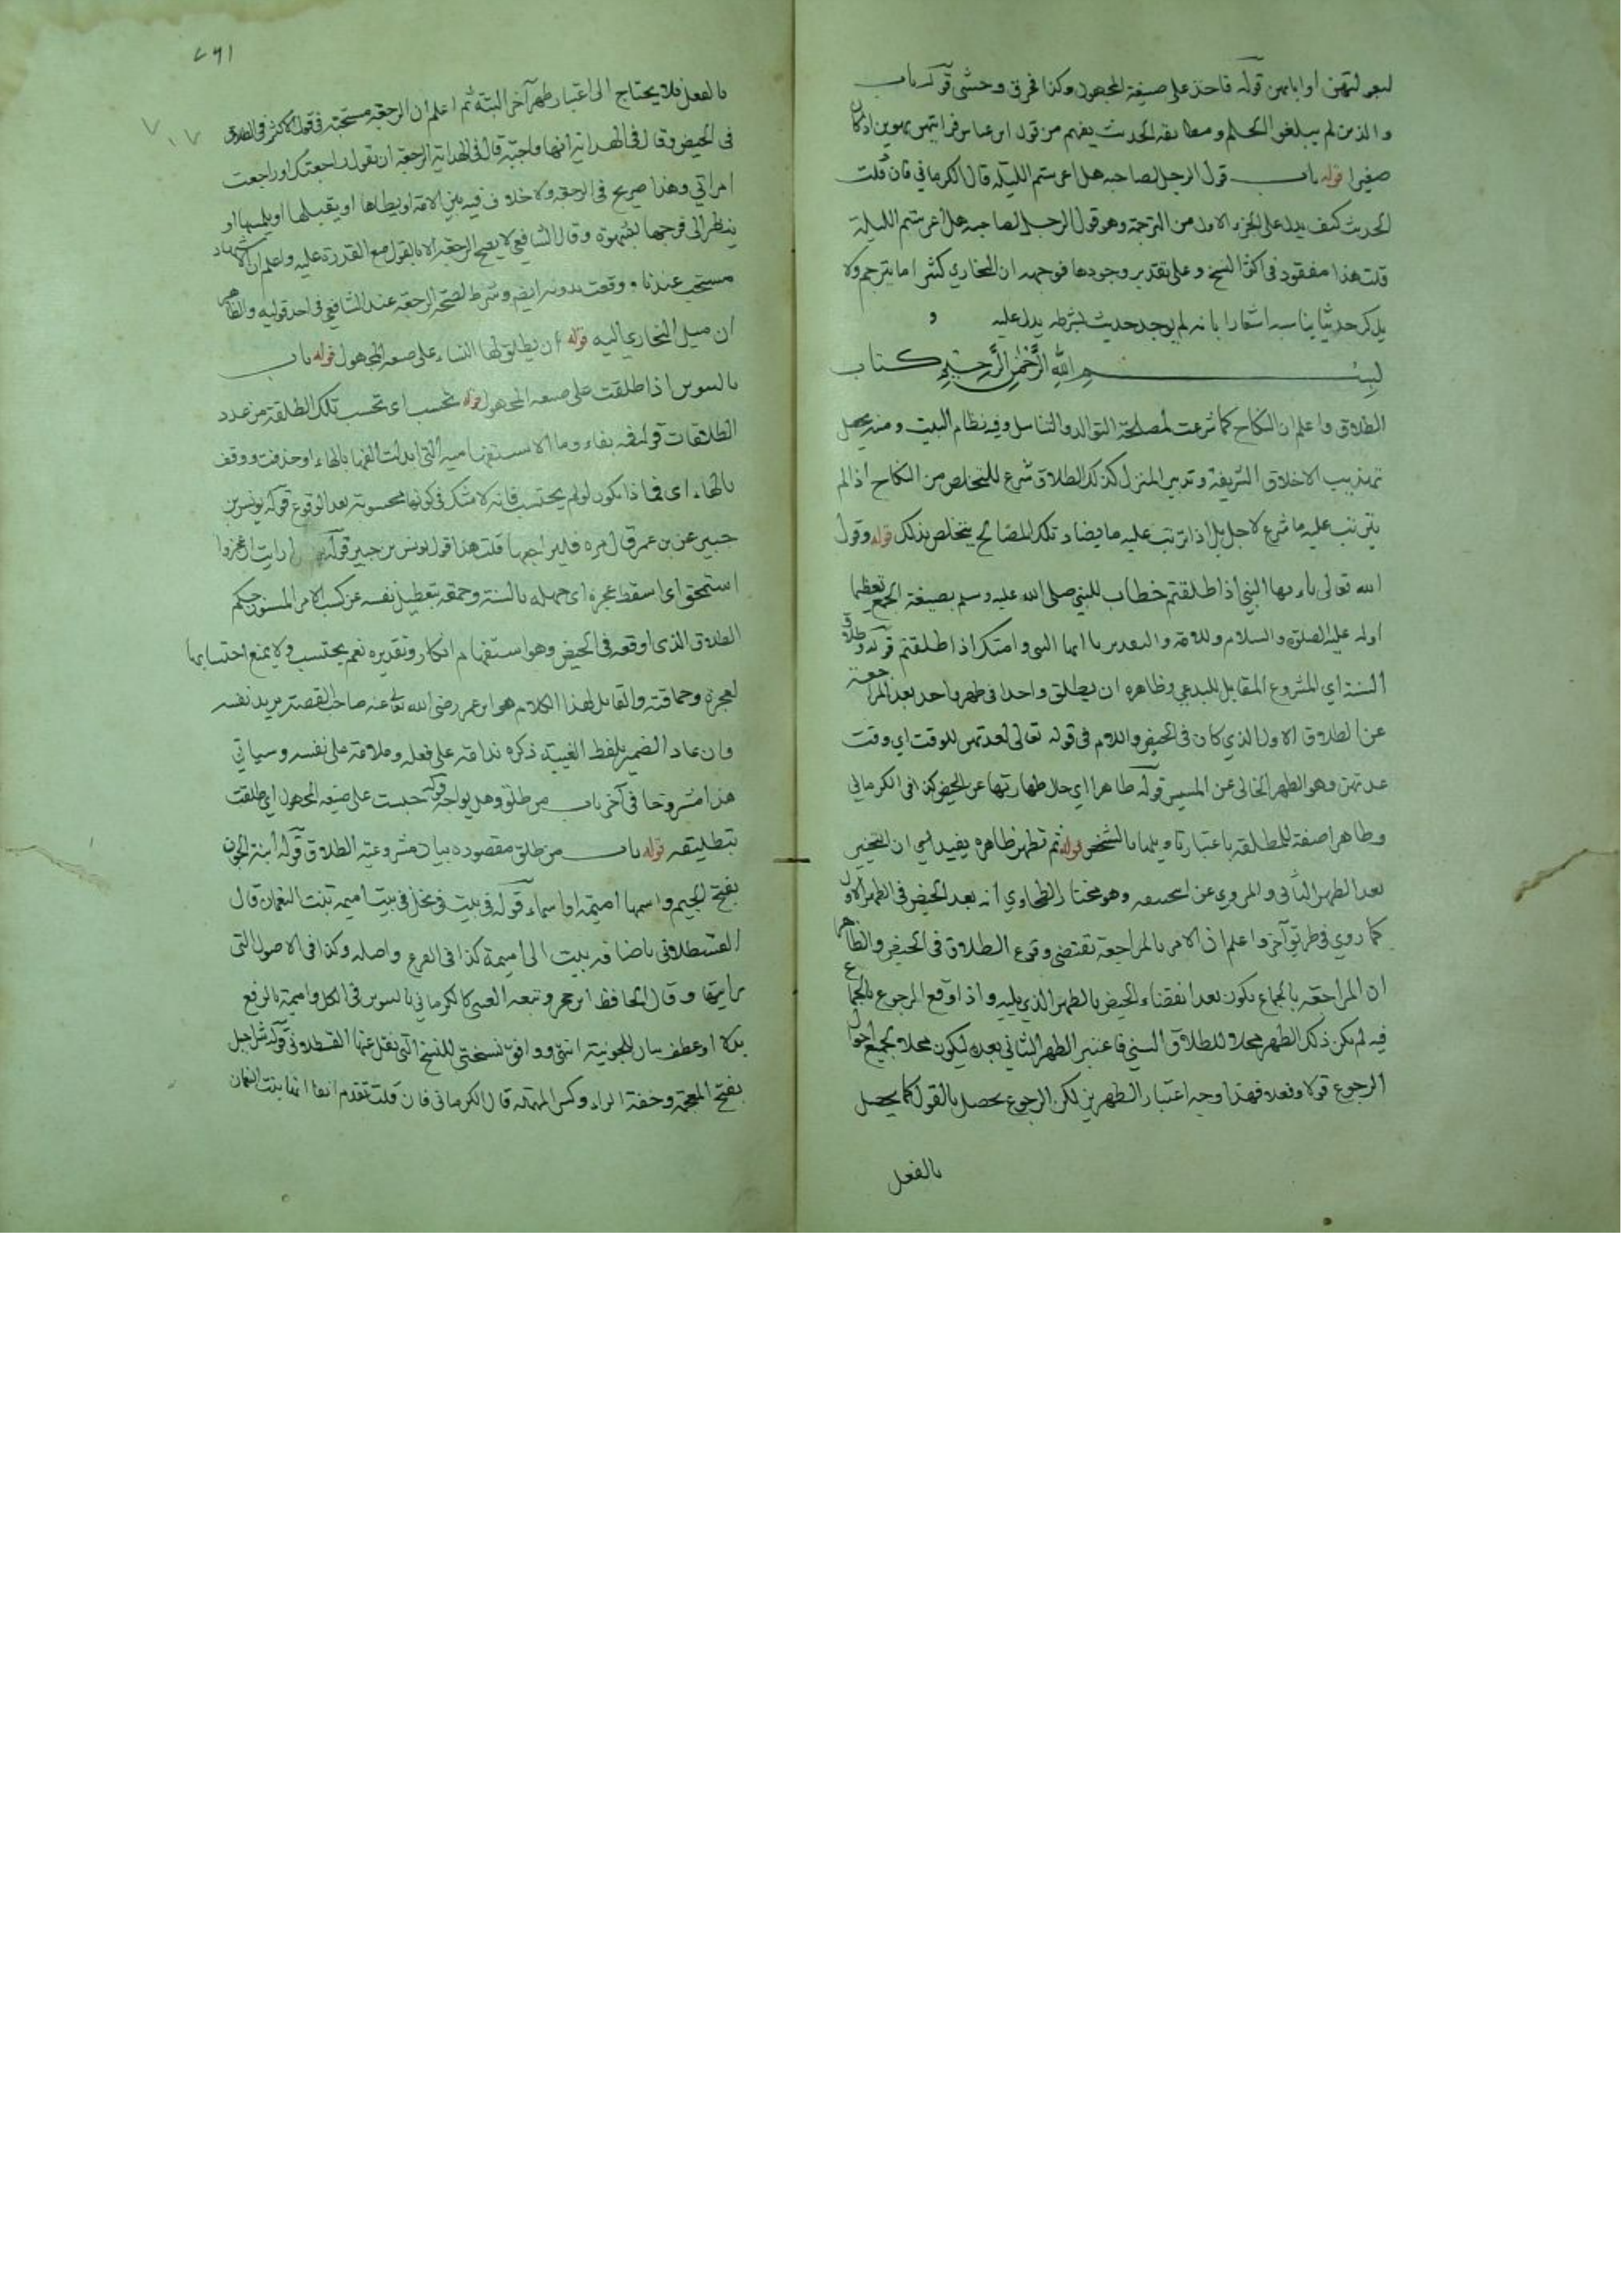 لبعولتهن او ابائهن قوله فاحذ على صيغة المجهول وكذا فحرق وحشى قوله باب
والذين لم يبلغوا الحلم ومطابقة الحديث يفهم من قول ابن عباس فرايتهن يهوين اذ كان
صغيرا قوله باب قول الرجل لصاحبه هل اعرستم الليلة قال الكرماني فان قلت
الحديث كيف يدل على الجزء الاول من الترجمة وهو قول الرجل لصاحبه هل اعرستم الليلة
قلت هذا مفقود في اكثر النسخ وعلى تقدير وجودها فوجهه ان البخاري كثيرا ما يترجم ولا
يذكر حديثا يناسبه اشعارا بانه لم يوجد حديث بشرطه يدل عليه و
بسم الله الرحمن الرحيم كتاب
الطلاق واعلم ان النكاح كما شرعت لمصلحة التوالد والتناسل وفيه نظام البيت ومنه يحصل
تهذيب الاخلاق الشريفة وتدبير المنزل كذلك الطلاق شرع للتخلص من النكاح اذا لم
يترتب عليه ما شرع لاجله بل اذا ترتب عليه ما يضاد تلك المصالح يتخلص بذلك قوله وقول
الله تعالى يا ايها النبي اذا طلقتم خطاب للنبي صلى الله عليه وسلم بصيغة الجمع تعظيما
او له عليه الصلوة والسلام وللامة والتقدير يا ايها النبي وامتك اذا طلقتم قوله وطلاق
السنة اي المشروع المقابل للبدعي وظاهره ان يطلق واحدا في طهر واحد بعد المراجعة
عن الطلاق الاول الذي كان في الحيض واللام في قوله تعالى لعدتهن للوقت اي وقت
عدتهن وهو الطهر الخالى عن المسيس قوله طاهرا اي حال طهارتها عن الحيض كذا في الكرماني
وطاهرا صفة للمطلقة باعتبار تاويلها بالشخص قوله ثم تطهر ظاهره يفيد ان التخيير
بعد الطهر الثاني والمروي عن ابى حنيفة وهو مختار الطحاوي انه بعد الحيض في الطهر الاول
كما روي في طريق آخر واعلم ان الامر بالمراجعة تقتضى وقوع الطلاق في الحيض والظاهر
ان المراجعة بالجماع يكون بعد انقضاء الحيض بالطهر الذي يليه واذا وقع الرجوع بالجماع
فيه لم يكن ذلك الطهر محلا للطلاق السني فاعتبر الطهر الثاني بعده ليكون محلا لجميع احوال
الرجوع قولا وفعلا فهذا وجه اعتبار الطهرين لكن الرجوع يحصل بالقول كما يحصل
بالفعل
بالفعل فلا يحتاج الى اعتبار طهر آخر البتة ثم اعلم ان الرجعة مستحبة في قول الاكثر في الطلاق
في الحيض وقال في الهداية انها واجبة قال في الهداية الرجعة ان تقول راجعتك او راجعت
امراتي وهذا صريح في الرجعة ولا خلاف فيه بين الامة او يطاها او يقبلها او يلمسها او
ينظر الى فرجها بشهوة وقال الشافعي لا يصح الرجعة الا بالقول مع القدرة عليه واعلم ان الاشهاد
مستحب عندنا ووقعت بدونه ايضا وشرط لصحة الرجعة عند الشافعي في احد قوليه والظاهر
ان ميل البخاري اليه قوله ان يطلق لها النساء على صيغة المجهول قوله باب
بالتنوين اذا طلقت على صيغة المجهول قوله تحسب اى تحسب تلك الطلقة من عدد
الطلاقات قوله فمه بفاء وما الاستفهامية التي ابدلت الفها بالهاء او حذفت ووقف
بالهاء اى فماذا يكون لو لم يحتسب فانه لا شك في كونها محسوبة بعد الوقوع قوله يونس بن
جبير عن بن عمر قال مره فليراجعها قلت هذا قول يونس بن جبير قوله ارايت ان عجز وا
استحمق اى اسقط عجزه اى جهله بالسنة وحمقه بتعطيل نفسه عن كسب الامر المسنون حكم
الطلاق الذى اوقعه في الحيض وهو استفهام انكار وتقديره نعم يحتسب ولا يمنع احتسابها
لعجزه وحماقته والقايل لهذا الكلام هو ابن عمر رضى الله تعالى عنه صاحب القصة يريد نفسه
وان عاد الضمير بلفظ الغيبة ذكره ندامة على فعله وملامة على نفسه وسياتي
هذا مشروحا في آخر باب من طلق وهل يواجه قوله حسبت على صيغة المجهول اي طلقت
بتطليقة قوله باب من طلق مقصوده بيان مشروعية الطلاق قوله ابنة الجون
بفتح الجيم واسمها اميمة او اسماء قوله في بيت في نخل في بيت اميمة بنت النعمان قال
القسطلاني باضافة بيت الى اميمة كذا في الفرع واصله وكذا في الاصول التي
رايتها وقال الحافظ ابن حجر وتبعه العيني كالكرماني بالتنوين في الكل واميمة بالرفع
بدلا او عطف بيان للجونية انتهى ووافق نسختى للنسخ التي نقل عنها القسطلاني قوله شراحيل
بفتح المعجمة وخفة الراء وكسر المهملة قال الكرماني فان قلت تقدم انفا انها بنت النعمان